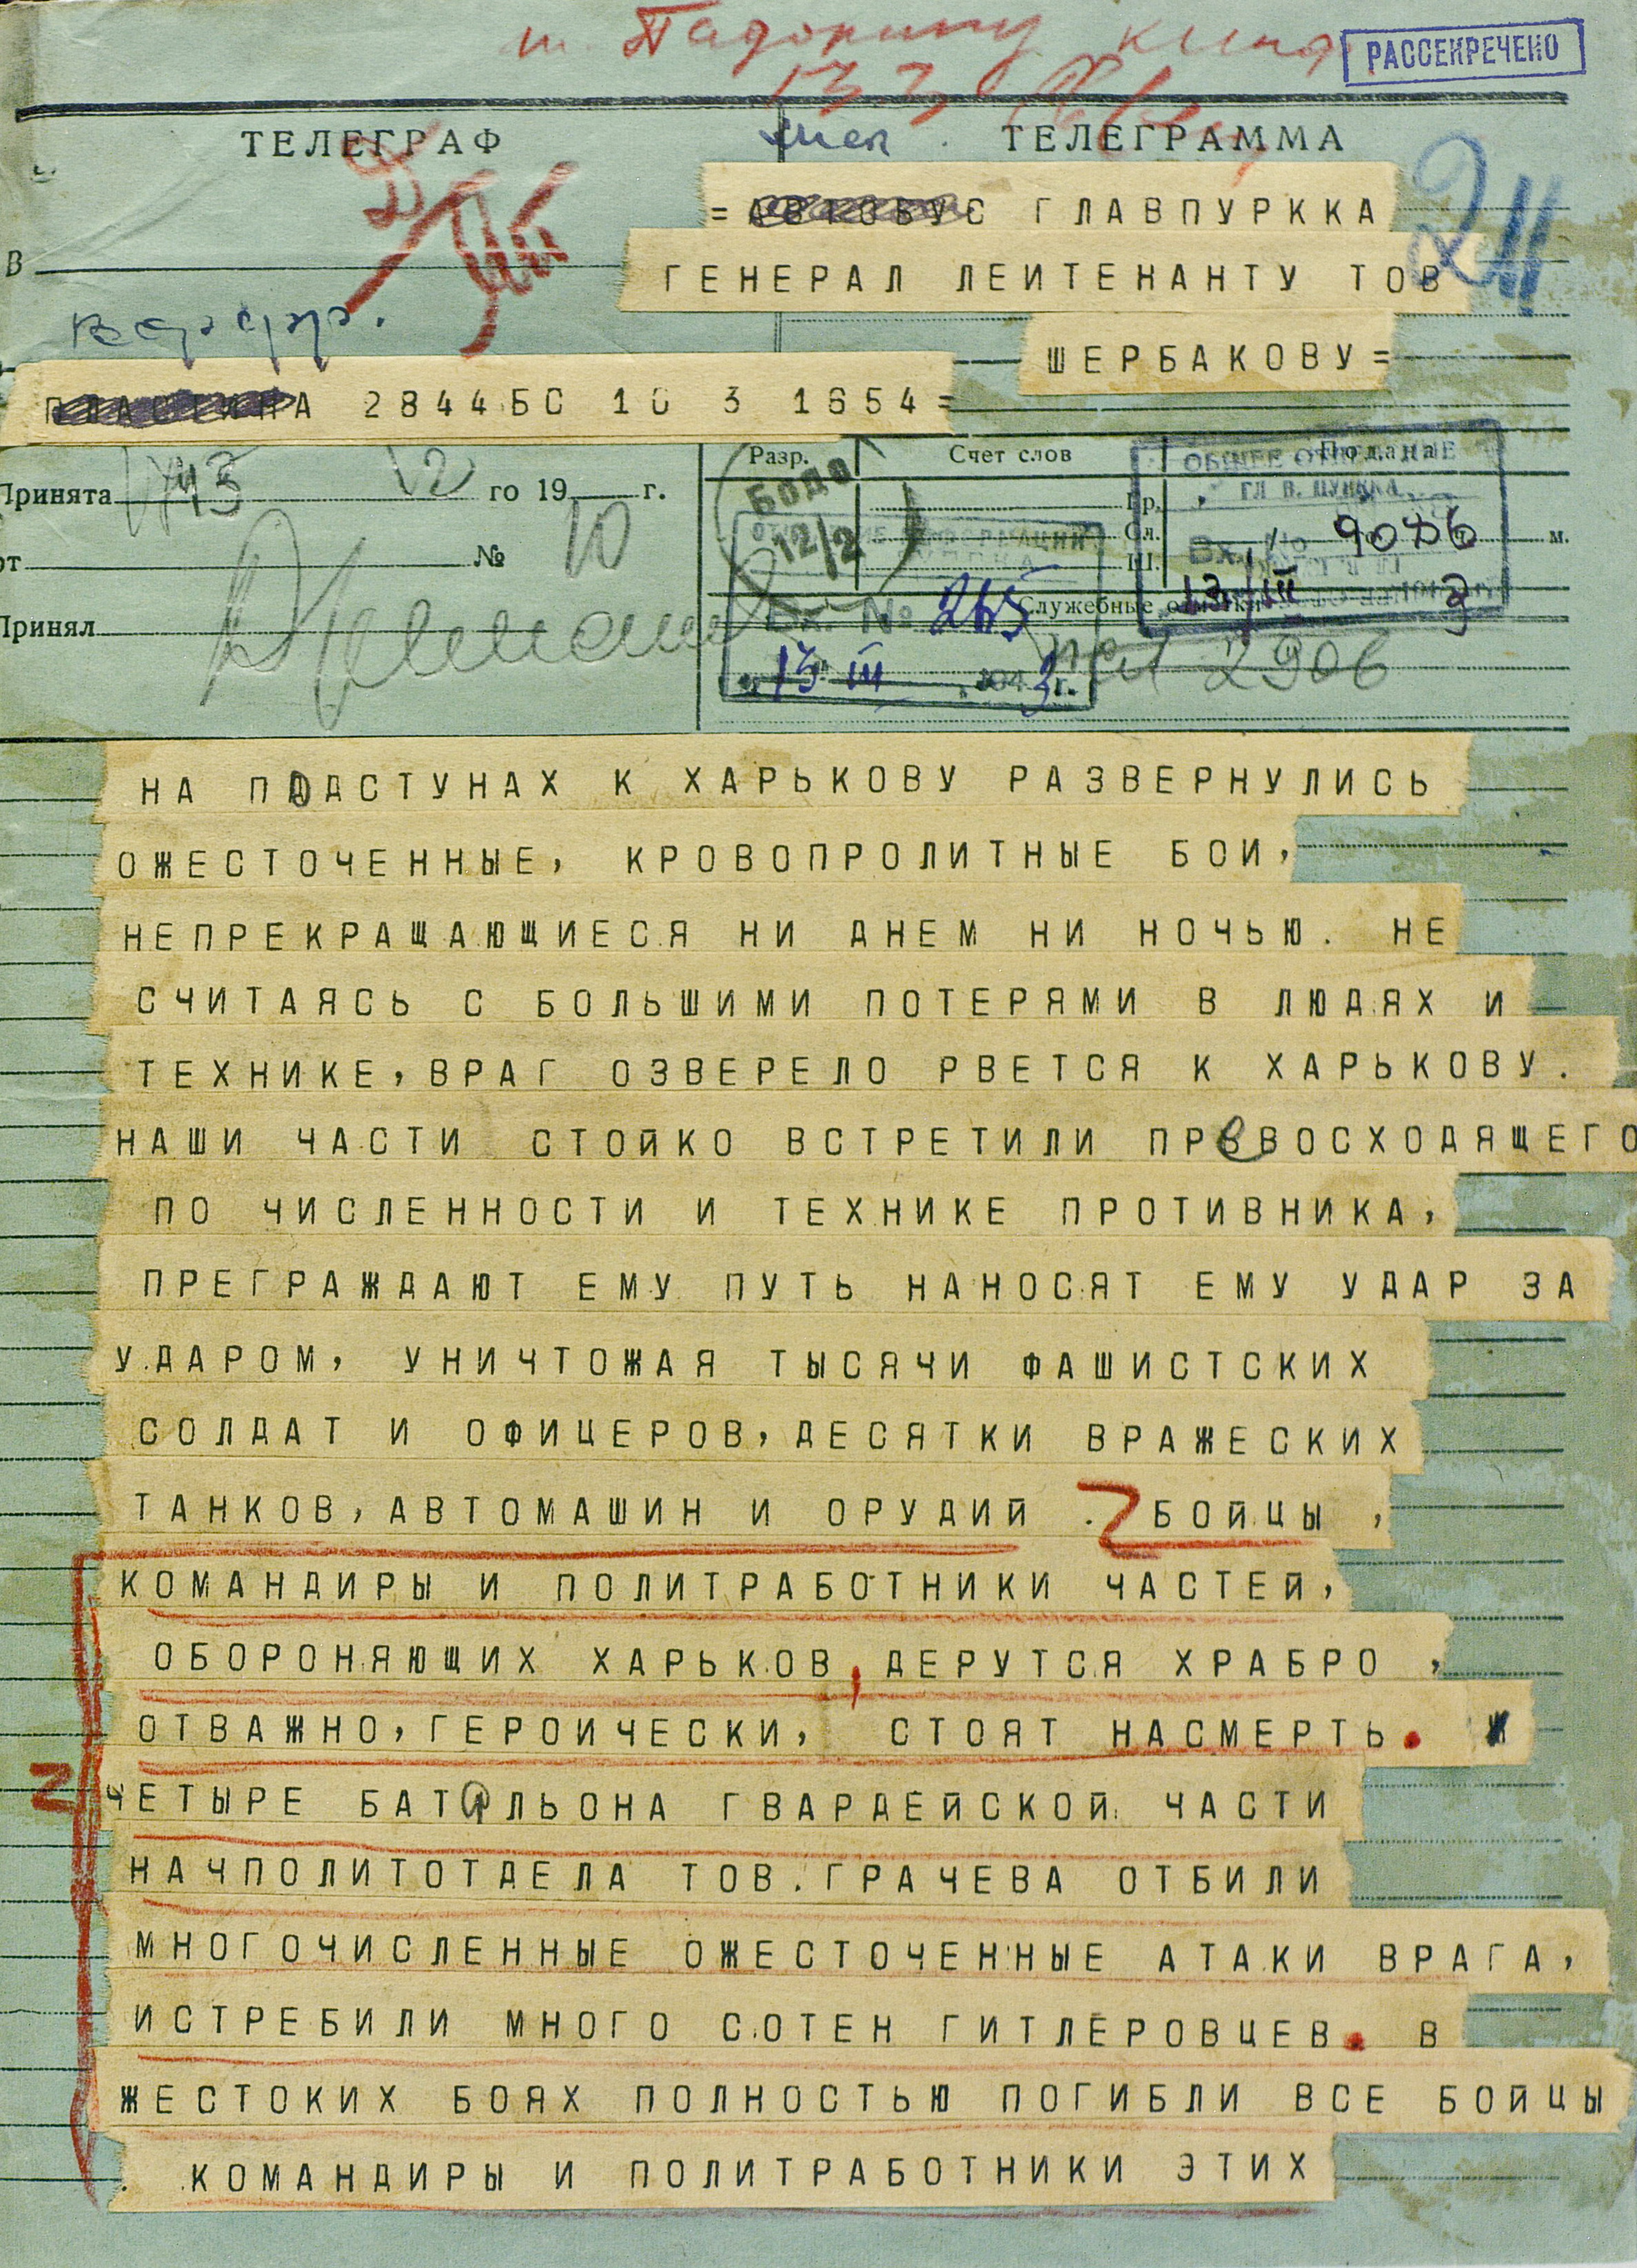 РАССЕКРЕЧЕНО
ТЕЛЕГРАФ
ТЕЛЕГРАММА
= АВТОБУС ГЛАВПУРККА
ГЕНЕРАЛ ЛЕИТЕНАНТУ ТОВ
ШЕРБАКОВУ=
В
ПЛАСТИНА 2844БС 10 3 1654=
Принята 13 12 го 19 г.
от № 10
Принял
Разр.
Счет слов
Подана
Гр.
Сл.
Ш.
м.
Служебные отметки
Бодо
12/2
ОБЩЕЕ ОТДЕЛЕНИЕ
Вх. № 9086
13/III 3
Вх. № 265
13 III 1943г.
2906
НА ПОДСТУНАХ К ХАРЬКОВУ РАЗВЕРНУЛИСЬ
ОЖЕСТОЧЕННЫЕ, КРОВОПРОЛИТНЫЕ БОИ,
НЕПРЕКРАЩАЮЩИЕСЯ НИ ДНЕМ НИ НОЧЬЮ. НЕ
СЧИТАЯСЬ С БОЛЬШИМИ ПОТЕРЯМИ В ЛЮДЯХ И
ТЕХНИКЕ, ВРАГ ОЗВЕРЕЛО РВЕТСЯ К ХАРЬКОВУ.
НАШИ ЧАСТИ СТОЙКО ВСТРЕТИЛИ ПРЕВОСХОДЯЩЕГО
ПО ЧИСЛЕННОСТИ И ТЕХНИКЕ ПРОТИВНИКА,
ПРЕГРАЖДАЮТ ЕМУ ПУТЬ НАНОСЯТ ЕМУ УДАР ЗА
УДАРОМ, УНИЧТОЖАЯ ТЫСЯЧИ ФАШИСТСКИХ
СОЛДАТ И ОФИЦЕРОВ, ДЕСЯТКИ ВРАЖЕСКИХ
ТАНКОВ, АВТОМАШИН И ОРУДИЙ . БОЙЦЫ ,
КОМАНДИРЫ И ПОЛИТРАБОТНИКИ ЧАСТЕЙ,
ОБОРОНЯЮЩИХ ХАРЬКОВ, ДЕРУТСЯ ХРАБРО ,
ОТВАЖНО, ГЕРОИЧЕСКИ, СТОЯТ НАСМЕРТЬ.
ЧЕТЫРЕ БАТАЛЬОНА ГВАРДЕЙСКОЙ ЧАСТИ
НАЧПОЛИТОТДЕЛА ТОВ. ГРАЧЕВА ОТБИЛИ
МНОГОЧИСЛЕННЫЕ ОЖЕСТОЧЕННЫЕ АТАКИ ВРАГА,
ИСТРЕБИЛИ МНОГО СОТЕН ГИТЛЕРОВЦЕВ. В
ЖЕСТОКИХ БОЯХ ПОЛНОСТЬЮ ПОГИБЛИ ВСЕ БОЙЦЫ
. КОМАНДИРЫ И ПОЛИТРАБОТНИКИ ЭТИХ